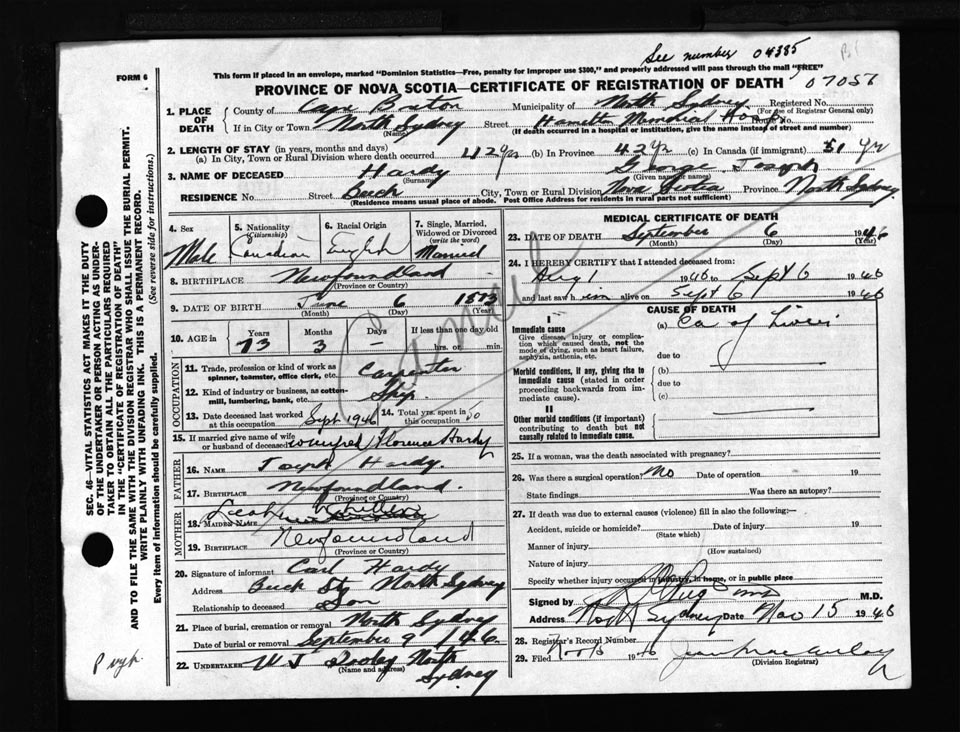 See number 04385
B1
FORM 6
This form if placed in an envelope, marked "Dominion Statistics—Free, penalty for improper use $300," and properly addressed will pass through the mail "FREE"
07056
PROVINCE OF NOVA SCOTIA—CERTIFICATE OF REGISTRATION OF DEATH
1. PLACE OF DEATH County of Cape Breton Municipality of North Sydney Registered No.
(For use of Registrar General only)
If in City or Town North Sydney Street Hamilton Memorial Hosp. House No.
(Name) (If death occurred in a hospital or institution, give the name instead of street and number)
2. LENGTH OF STAY (in years, months and days)
(a) In City, Town or Rural Division where death occurred 42 yrs (b) In Province 42 yr (c) In Canada (if immigrant) 51 yr
3. NAME OF DECEASED Hardy George Joseph
(Surname) (Given name or names)
RESIDENCE No. Street Beech City, Town or Rural Division Nova Scotia Province North Sydney
(Residence means usual place of abode. Post Office Address for residents in rural parts not sufficient)
SEC. 46—VITAL STATISTICS ACT MAKES IT THE DUTY
OF THE UNDERTAKER OR PERSON ACTING AS UNDER-
TAKER TO OBTAIN ALL THE PARTICULARS REQUIRED
IN THE "CERTIFICATE OF REGISTRATION OF DEATH"
AND TO FILE THE SAME WITH THE DIVISION REGISTRAR WHO SHALL ISSUE THE BURIAL PERMIT.
WRITE PLAINLY WITH UNFADING INK. THIS IS A PERMANENT RECORD.
Every item of Information should be carefully supplied. (See reverse side for instructions.)
4. Sex
Male
5. Nationality
(Citizenship)
Canadian
6. Racial Origin
English
7. Single, Married,
Widowed or Divorced
(write the word)
Married
8. BIRTHPLACE Newfoundland
(Province or Country)
9. DATE OF BIRTH June 6 1873
(Month) (Day) (Year)
10. AGE in Years Months Days If less than one day old
73 3 — hrs. or min.
Cancel
OCCUPATION
11. Trade, profession or kind of work as
spinner, teamster, office clerk, etc. Carpenter
12. Kind of industry or business, as cotton-
mill, lumbering, bank, etc. Ship
13. Date deceased last worked
at this occupation Sept 1946
14. Total yrs. spent in
this occupation 50
15. If married give name of wife
or husband of deceased Winifred Florence Hardy
FATHER
16. NAME Joseph Hardy.
17. BIRTHPLACE Newfoundland.
(Province or Country)
MOTHER
18. MAIDEN NAME Leah
19. BIRTHPLACE Newfoundland
(Province or Country)
20. Signature of informant Carl Hardy
Address Beech St, North Sydney
Relationship to deceased Son
21. Place of burial, cremation or removal North Sydney
Date of burial or removal September 9 / 46.
22. UNDERTAKER W J Dooley North
(Name and address)
Sydney
MEDICAL CERTIFICATE OF DEATH
23. DATE OF DEATH September 6 1946
(Month) (Day) (Year)
24. I HEREBY CERTIFY that I attended deceased from:
Aug 1 1946 to Sept 6 1946
and last saw him alive on Sept 6 1946
CAUSE OF DEATH
I
Immediate cause (a) Ca of Liver
Give disease, injury or complica-
tion which caused death, not the
mode of dying, such as heart failure,
asphyxia, asthenia, etc. due to
Morbid conditions, if any, giving rise to (b)
immediate cause (stated in order due to
proceeding backwards from im-
mediate cause). (c)
II
Other morbid conditions (if important)
contributing to death but not
causally related to immediate cause.
25. If a woman, was the death associated with pregnancy?
26. Was there a surgical operation? No Date of operation 19
State findings Was there an autopsy?
27. If death was due to external causes (violence) fill in also the following:—
Accident, suicide or homicide? Date of injury 19
(State which)
Manner of injury
(How sustained)
Nature of injury
Specify whether injury occurred in industry, in home, or in public place
Signed by MD M.D.
Address North Sydney Date Nov 15 1946
28. Registrar's Record Number
29. Filed Nov 1946
(Division Registrar)